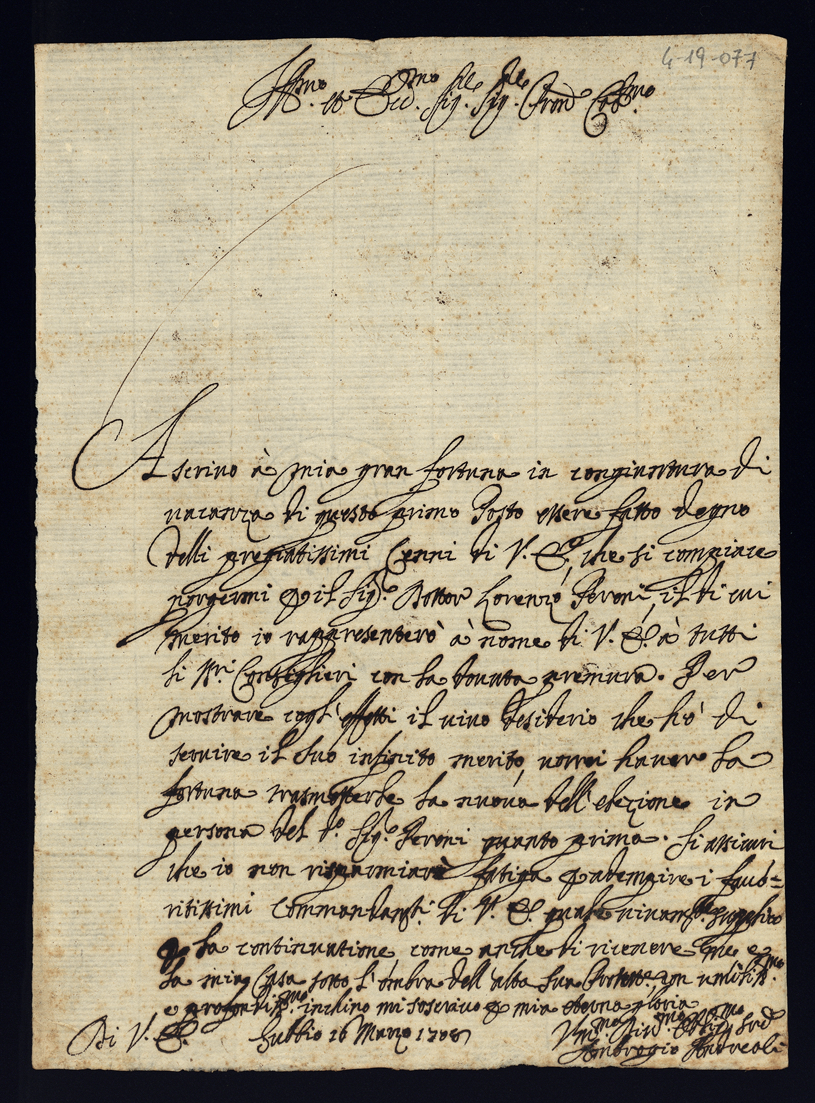 4-19-077
Ill.mo et Ecc.mo Sig.re Sig.re Pron Col.mo
Ascrivo à mia gran fortuna in congiuntura di
vacanza di questo primo Posto essere fatto degno
delli pregiatissimi Cenni di V. E. che si compiace
porgermi p il Sig.r Dottor Lorenzo Peroni, il di cui
merito io rappresenterò à nome di V. E. à tutti
li Nri Consiglieri con la dovuta premura. Per
mostrare cogl'effetti il vivo desiderio che hò di
servire il suo infinito merito, vorrei haver la
fortuna trasmetterle la nuova dell'elezione in
persona del d.o Sig.r Peroni quanto prima. Si assicuri
che io non risparmiarò fatiga p adempire i favo=
ritissimi commandam.ti di V. E. quale vivam.te supplico
p la continuatione, come anche di ricevere me e
la mia Casa sotto l'ombra dell'alta sua Protett.e con umiliss.mo
e profondiss.mo inchino mi soscrivo p mia eterna gloria
Di V. E. Gubbio 16 Marzo 1708
Um.mo Dev.mo Obl.mo Ser.
Ambrogio Andreoli